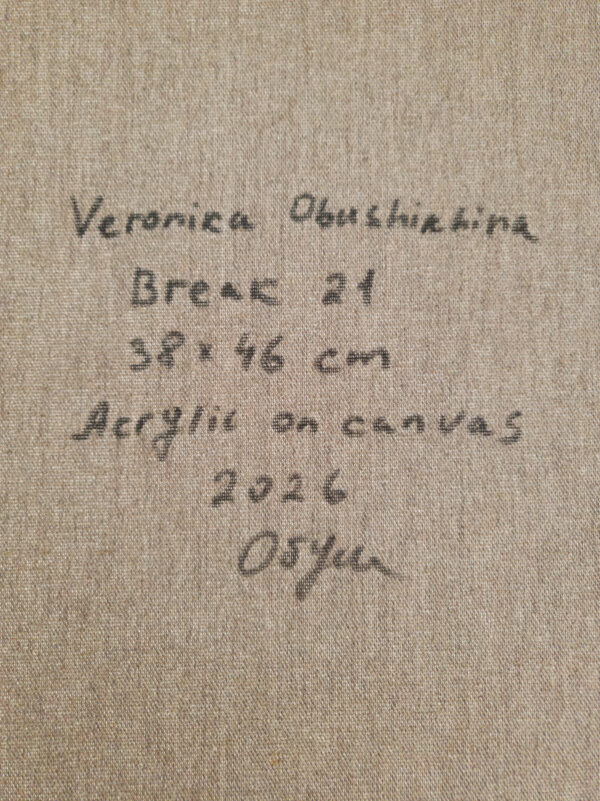 Veronica Obushikhina
Break 21
38 x 46 cm
Acrylic on canvas
2026
Обуш